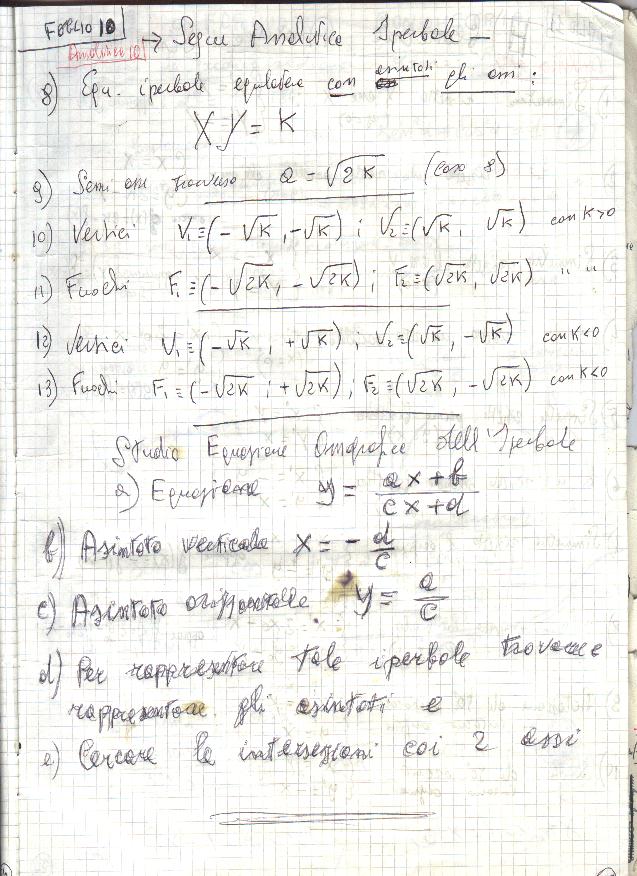 FOGLIO 10
Analitica 10 → Segue Analitica Iperbole —
8) Equ. iperbole equilatera con asintoti gli assi :
XY = K
9) Semi asse trasverso a = √2K (caso 8)
10) Vertici V₁≡(-√K, -√K) ; V₂≡(√K, √K) con K>0
11) Fuochi F₁≡(-√2K, -√2K) ; F₂≡(√2K, √2K) " "
12) Vertici V₁≡(-√K, +√K) ; V₂≡(√K, -√K) con K<0
13) Fuochi F₁≡(-√2K ; +√2K) ; F₂≡(√2K, -√2K) con K<0
Studio Equazione Omografica dell'Iperbole
a) Equazione y = ax+b / cx+d
b) Asintoto verticale x = - d/c
c) Asintoto orizzontale y = a/c
d) Per rappresentare tale iperbole trovare e
rappresentare gli asintoti e
e) Cercare le intersezioni coi 2 assi